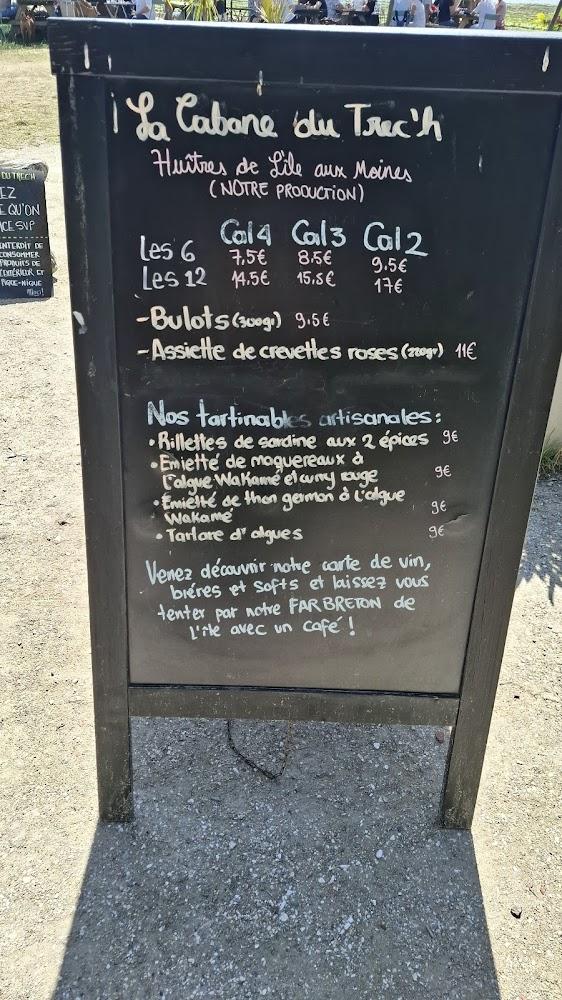 DU TREC'H
EZ
E QU'ON
ICE SVP
INTERDIT DE
CONSOMMER
PRODUITS DE
L'EXTÉRIEUR ET
PIQUE-NIQUE
Merci!
La Cabane du Trec'h
Huîtres de L'île aux Moines
(NOTRE PRODUCTION)
Cal 4 Cal 3 Cal 2
Les 6 7,5€ 8.5€ 9.5€
Les 12 14.5€ 15.5€ 17€
-Bulots (300gr) 9.5€
-Assiette de crevettes roses (220gr) 11€
Nos tartinables artisanales:
•Rillettes de sardine aux 2 épices 9€
•Emietté de maquereaux à
l'algue Wakamé et curry rouge 9€
•Émietté de thon germon à l'algue
Wakamé 9€
•Tartare d'algues 9€
Venez découvrir notre carte de vin,
bières et softs et laissez vous
tenter par notre FAR BRETON de
l'île avec un café !